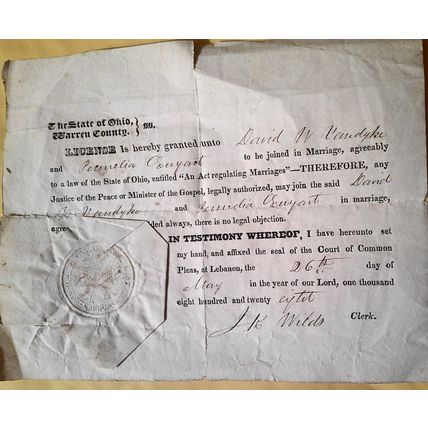 The State of Ohio,
Warren County. } ss.
LICENSE Is hereby granted unto David W Vandyke
and Permelia Conyart to be joined in Marriage, agreeably
to a law of the State of Ohio, entitled "An Act regulating Marriages"—THEREFORE, any
Justice of the Peace or Minister of the Gospel, legally authorized, may join the said David
W Vandyke and Permelia Conyart in marriage,
agree ded always, there is no legal objection.
IN TESTIMONY WHEREOF, I have hereunto set
my hand, and affixed the seal of the Court of Common
Pleas, at Lebanon, the 26th day of
May in the year of our Lord, one thousand
eight hundred and twenty eight
J K Wilds Clerk.